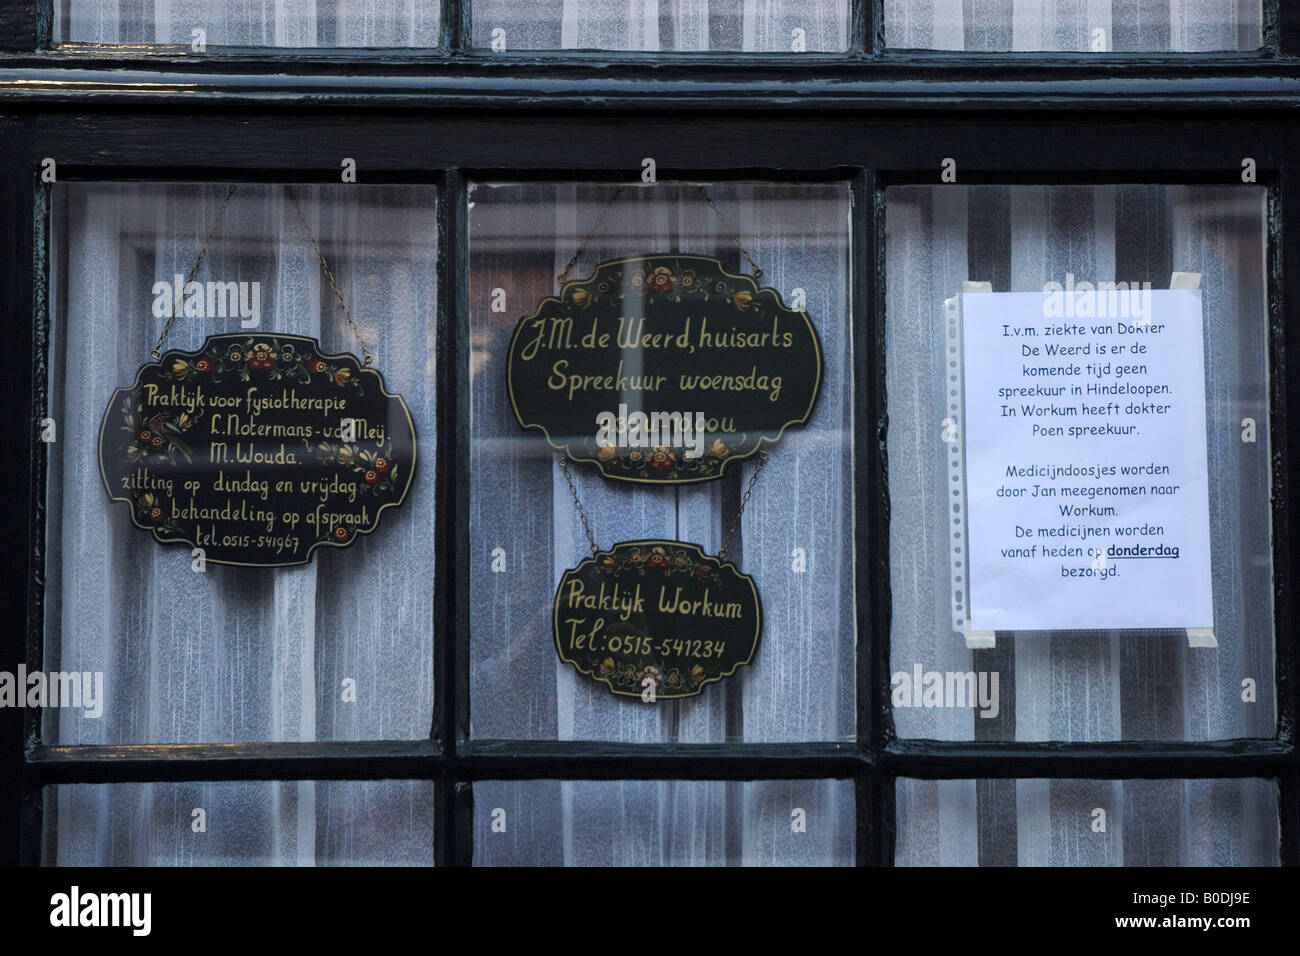 Praktijk voor fysiotherapie
L. Notermans-v.d. Meij.
M. Wouda.
zitting op dindag en vrijdag
behandeling op afspraak
tel. 0515-541967
J.M. de Weerd, huisarts
Spreekuur woensdag
9.30u-10.00u
Praktijk Workum
Tel: 0515-541234
I.v.m. ziekte van Dokter
De Weerd is er de
komende tijd geen
spreekuur in Hindeloopen.
In Workum heeft dokter
Poen spreekuur.
Medicijndoosjes worden
door Jan meegenomen naar
Workum.
De medicijnen worden
vanaf heden op donderdag
bezorgd.
alamy
alamy
alamy
Image ID: B0DJ9E
www.alamy.com